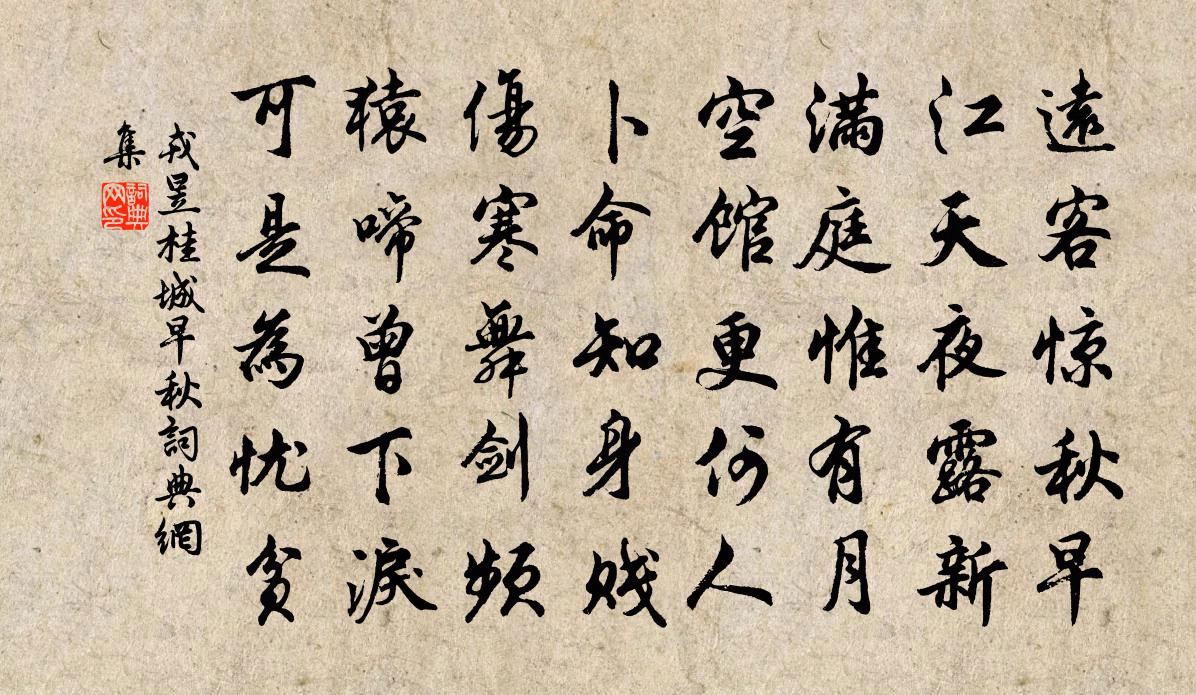 遠客惊秋早
江天夜露新
滿庭惟有月
空館更何人
卜命知身贱
傷寒舞剑频
猿啼曾下淚
可是為忧贫
戎昱桂城早秋詞典網
集
詞典
网印